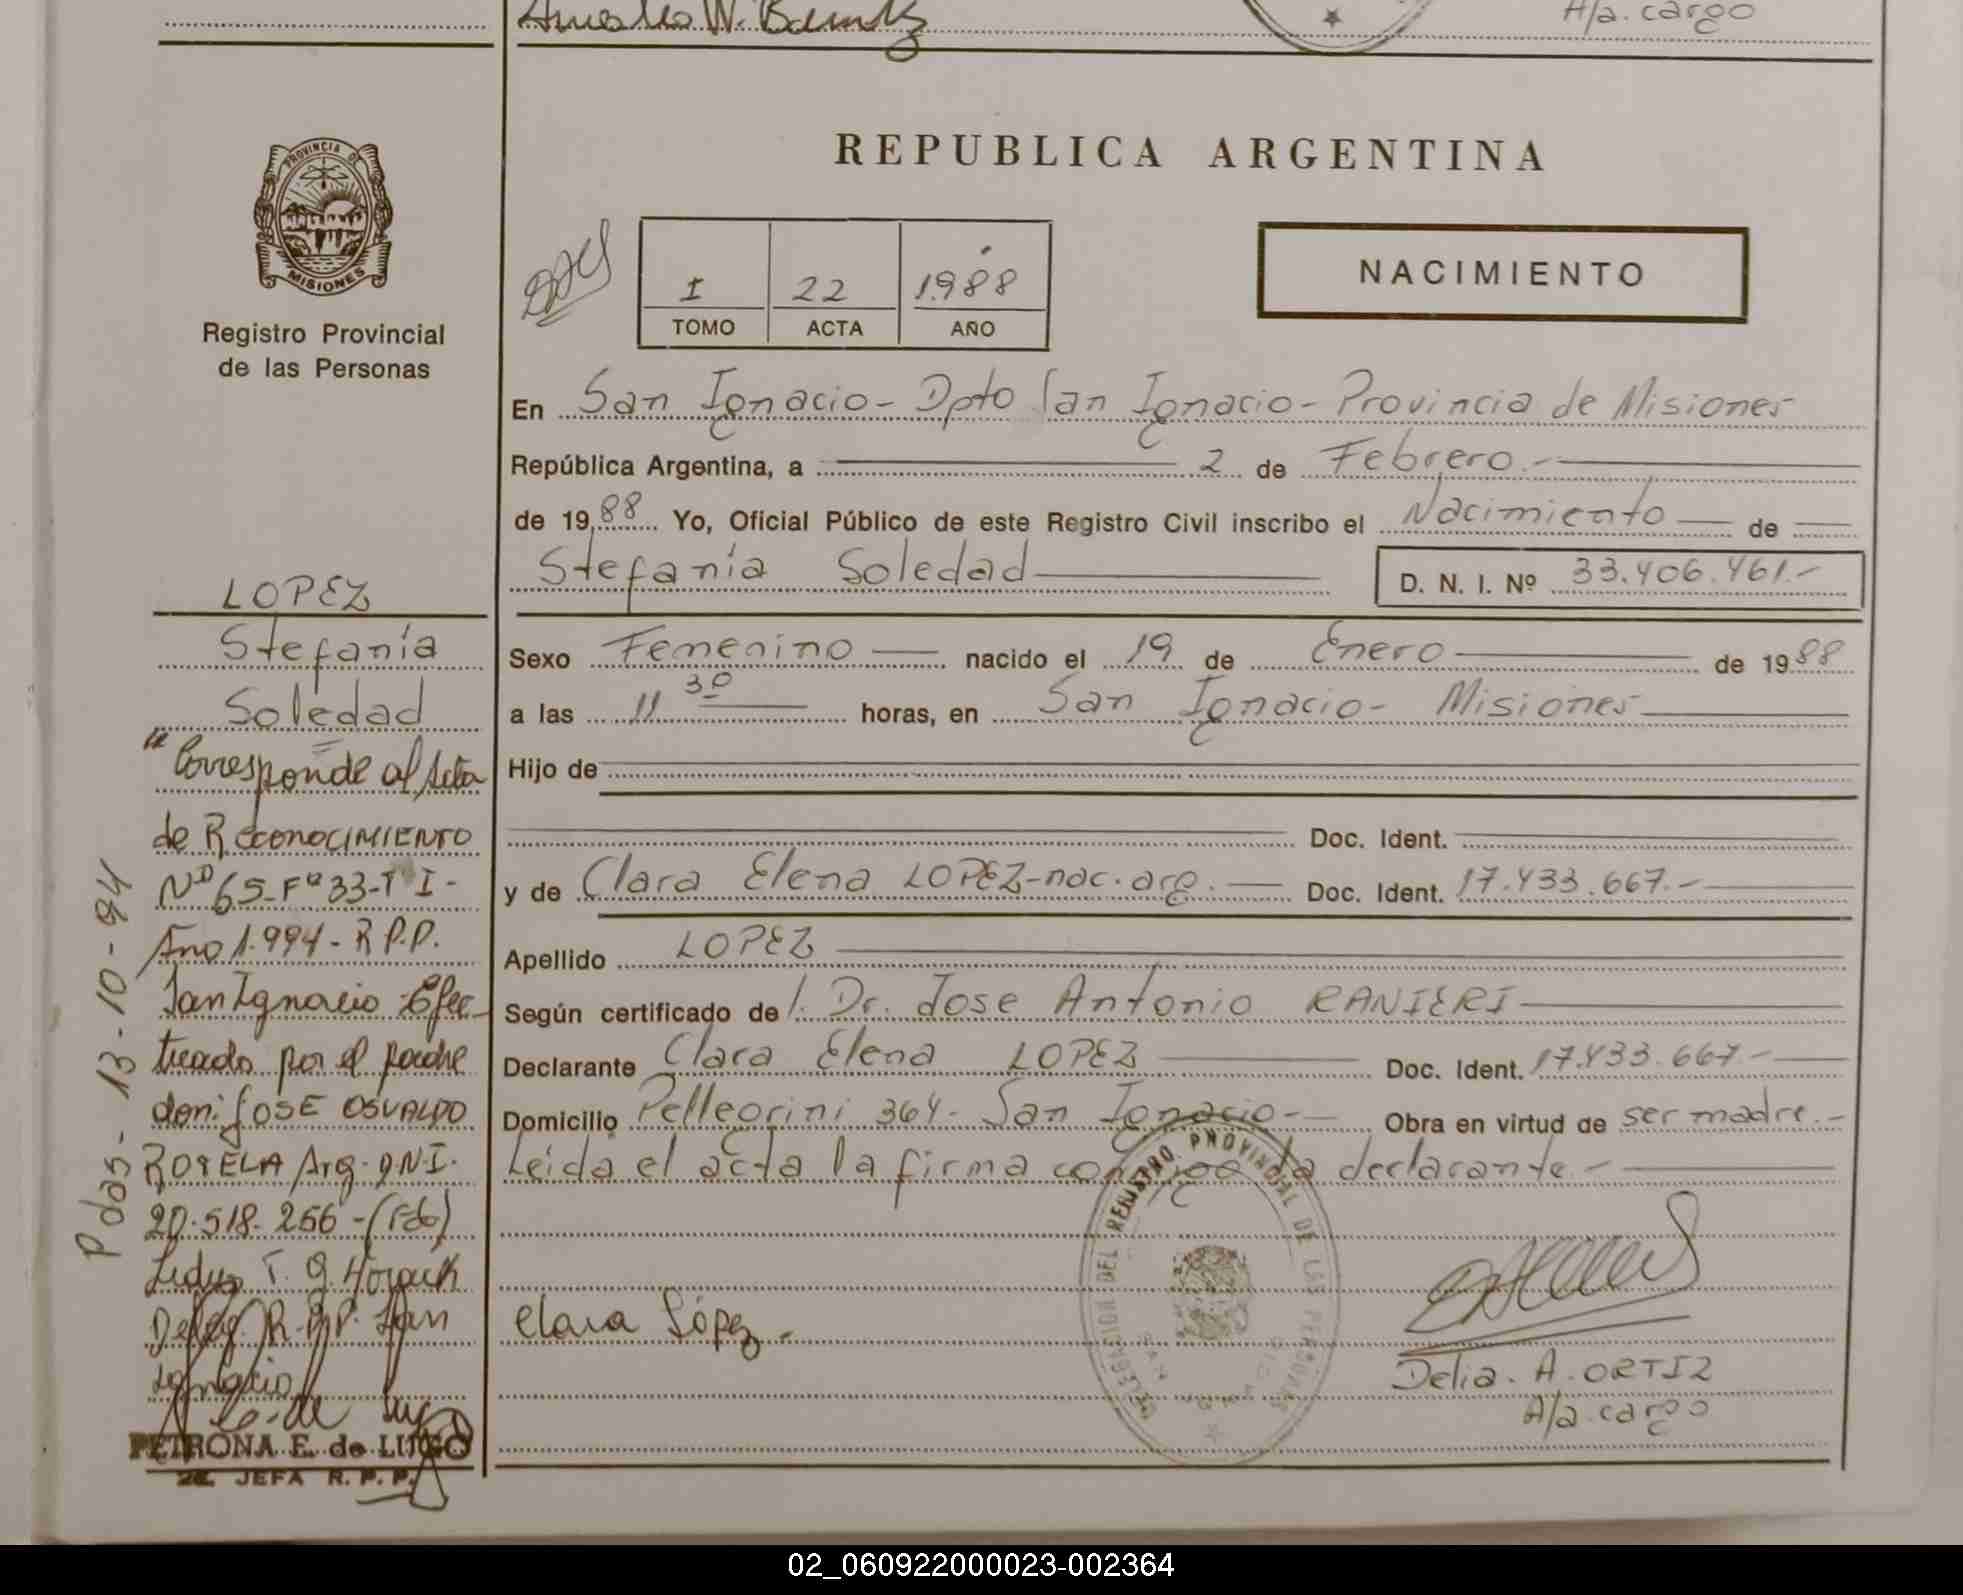 A/a. cargo
PROVINCIA DE
MISIONES
Registro Provincial
de las Personas
REPUBLICA ARGENTINA
I 22 1.988
TOMO ACTA AÑO
NACIMIENTO
En San Ignacio - Dpto San Ignacio - Provincia de Misiones
República Argentina, a 2 de Febrero.-
de 1988 Yo, Oficial Público de este Registro Civil inscribo el Nacimiento de
Stefanía Soledad D. N. I. Nº 33.406.461.-
Sexo Femenino nacido el 19 de Enero de 1988
a las 11 30 horas, en San Ignacio - Misiones
Hijo de
Doc. Ident.
y de Clara Elena LOPEZ-nac. arg. Doc. Ident. 17.433.667.-
Apellido LOPEZ
Según certificado de l. Dr. Jose Antonio RANIERI
Declarante Clara Elena LOPEZ Doc. Ident. 17.433.667-
Domicilio Pellegrini 364- San Ignacio- Obra en virtud de ser madre.-
Leida el acta la firma conmigo la declarante.-
Clara López.
Delia. A. ORTIZ
A/a. cargo
DELEGACION DEL REGISTRO PROVINCIAL DE LAS PERSONAS
LOPEZ
Stefanía
Soledad
"Corresponde al Acta
de RECONOCIMIENTO
Nº 65-Fº 33-Tº I-
Año 1.994- R.P.P.
San Ignacio-Efec-
tuado por el padre
don: JOSE OSVALDO
Arg. DNI.
20.518.266-(Fdo)
T. G.
Deleg. R.P.P. San
Ignacio
PETRONA E. de LUGO
2a. JEFA R. P. P.
Pdas- 13-10-94
02_060922000023-002364